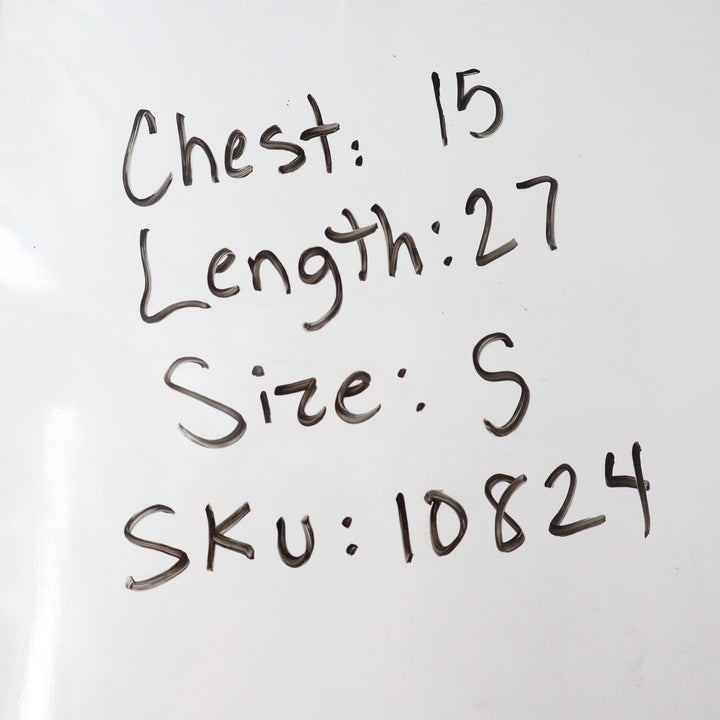 Chest: 15
Length: 27
Size: S
SKU: 10824